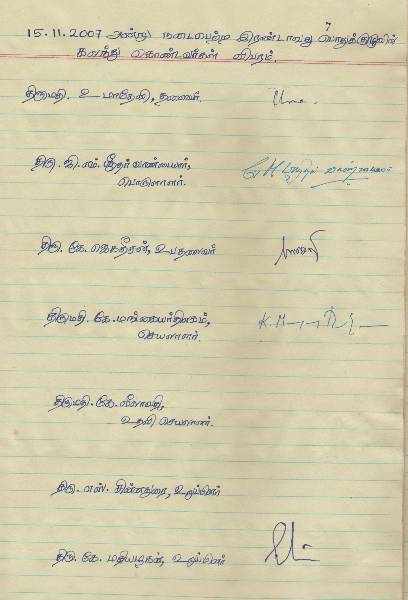 7
15.11.2007 அன்று நடைபெற்ற இரண்டாவது பொதுக்குழுவின்
கலந்து கொண்டவர்கள் விபரம்.
திருமதி. உமாதேவி, தலைவர். Uma
திரு. ஜி. எம். ஸ்ரீதர் வாண்டையார்,
பொருளாளர்.
திரு. கே. ஜெகதீசன், உபதலைவர்
திருமதி. கே. மங்கையர்திலகம், K. M
செயலாளர்.
திருமதி. கே. லீலாவதி,
உதவி செயலாளர்.
திரு. எஸ். சின்னதுரை, உறுப்பினர்
திரு. கே. மதியழகன், உறுப்பினர்